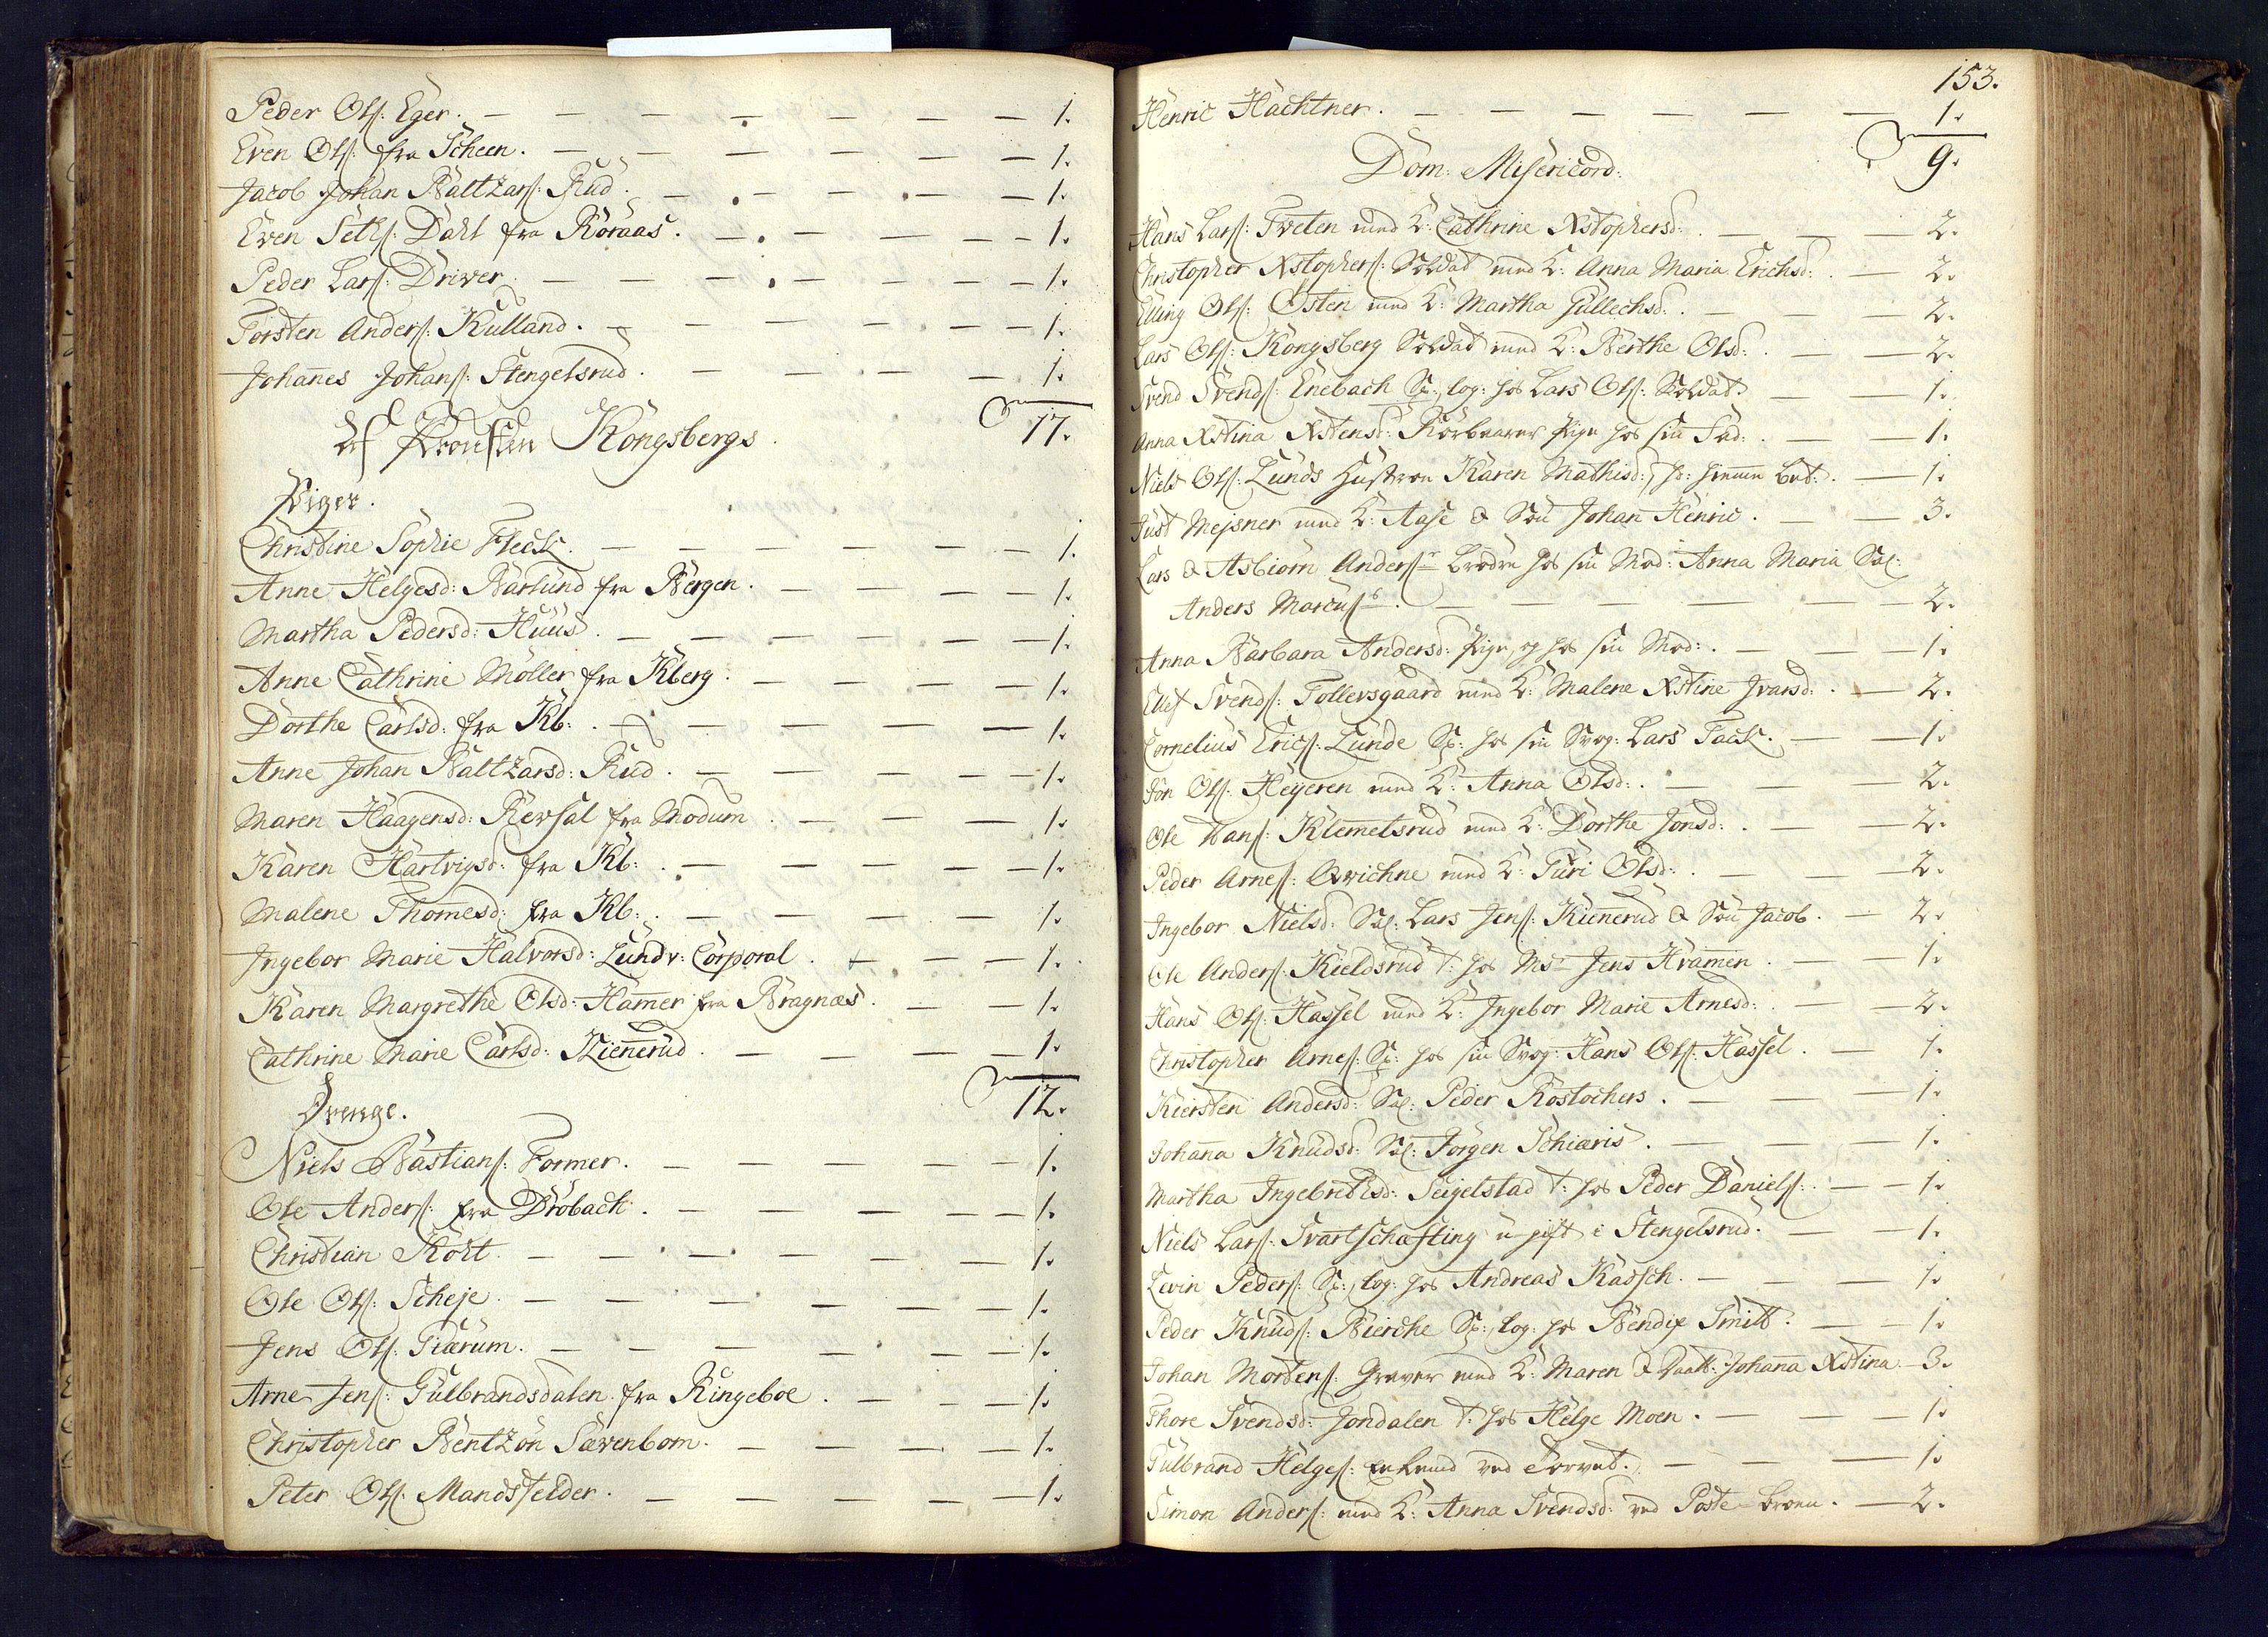 Peder Ols: Eger. 1.
Even Ols: fra Scheen. 1.
Jacob Johan Baltzars: Rud. 1.
Even Seths: Dahl fra Röraas. 1.
Peder Lars: Driver. 1.
Torsten Anders: Kulland. 1.
Johanes Johans: Stengelsrud. 1.
17.
Kongsbergs
Piger.
Christine Sophie Fleck. 1.
Anne Helgesd: Barlund fra Bergen. 1.
Martha Pedersd: Huus. 1.
Anne Cathrine Möller fra Kberg. 1.
Dorthe Carlsd: fra Kb: 1.
Anne Johan Baltzarsd: Rud. 1.
Maren Haagensd: Rersal fra Modum 1.
Karen Hartvigsd: fra Kb: 1.
Malene Thomesd: fra Kb: 1.
Ingebor Marie Halvorsd: Lund v: Corporal. 1.
Karen Margrethe Olsd: Hamer fra Bragnæs. 1.
Cathrine Marie Carlsd: Kienerud. 1.
12.
Drenge.
Niels Bastians: Former. 1.
Ole Anders: fra Dröbach. 1.
Christian Kort. 1.
Ole Ols: Scheje. 1.
Jens Ols: Tiærum. 1.
Arne Jens: Gulbrandsdalen fra Ringeboe. 1.
Christopher Bentzön Sævenbom. 1.
Peter Ols: Mandsfelder. 1.
153.
Henric Hachtner. 1.
9.
Dom: Misericord:
Hans Lars: Tveten med K: Cathrine Xstophersd: 2.
Christopher Xstophers: Soldat med K: Anna Maria Erichsd: 2.
Elling Ols: Østen med K: Martha Gullechsd: 2.
Lars Ols: Kongsberg Soldat med K: Berthe Olsd: 2.
Svend Svends: Enebach Sv: log: hos Lars Ols: Soldat. 1.
Anna Xstina Xstensd: Pige hos sin Fad: 1.
Niels Ols: Lunds Hustroe Karen Mathisd: hiemme bet: 1.
Just Mejsner med K: Aase & Sön Johan Henric. 3.
Lars & Asbiörn Anders: brödre hos sin Mod: Anna Maria Sal:
Anders Marcus: 2.
Anna Barbara Andersd: Pige og hos sin Mod: 1.
Ellef Svends: Tollevsgaard med K: Malene Xstine Ivarsd: 2.
Cornelius Erics: Lunde Sv: hos sin Svog: Lars Fack. 1.
Jon Ols: Heyeren med K: Anna Olsd: 2.
Ole Hans: Klemetsrud med K: Dorthe Jonsd: 2.
Peder Arnes: Qvichne med K: Turi Olsd: 2.
Ingebor Nielsd: Sal: Lars Jens: Kienerud & Sön Jacob. 2.
Ole Anders: Kieldsrud t: hos Msr Jens Kramen. 1.
Hans Ols: Hassel med K: Ingebor Marie Arnesd: 2.
Christopher Arnes: Sv: hos sin Svog: Hans Ols: Hassel. 1.
Kiersten Andersd: Sal: Peder Rostochers. 1.
Johana Knudsd: Sal: Jörgen Schiæris. 1.
Martha Ingebrethsd: Seigelstad t: hos Peder Daniels: 1.
Niels Lars: Svartschafting u-gift i Stengelsrud. 1.
Levin Peders: Sv: log: hos Andreas Kassch. 1.
Peder Knuds: Bierche Sv: log: hos Bendix Smitt. 1.
Johan Mortens: Graver med K: Maren & Daatt: Johana Xstina 3.
Thore Svendsd: Jondalen t: hos Helge Moen. 1.
Gulbrand Helges: Enkemd ved Torvet. 1.
Simon Anders: med K: Anna Svendsd: ved Poste-broen. 2.